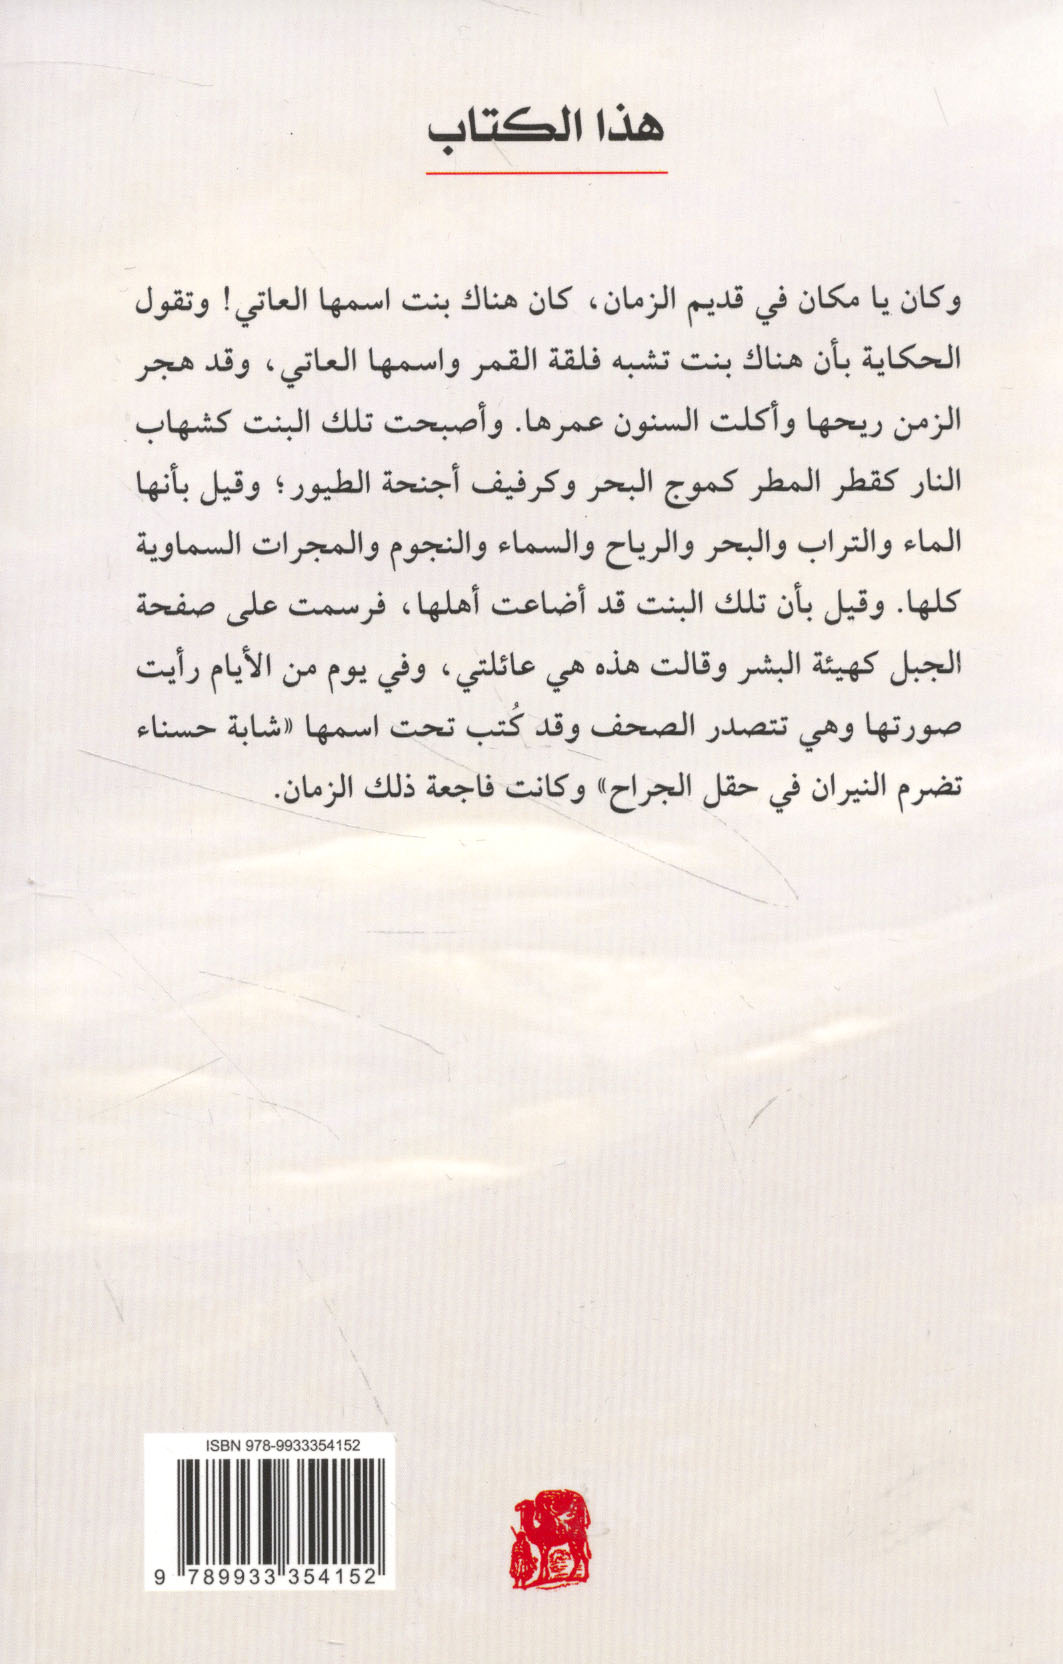 هذا الكتاب
وكان يا مكان في قديم الزمان، كان هناك بنت اسمها العاتي! وتقول
الحكاية بأن هناك بنت تشبه فلقة القمر واسمها العاتي، وقد هجر
الزمن ريحها وأكلت السنون عمرها. وأصبحت تلك البنت كشهاب
النار كقطر المطر كموج البحر وكرفيف أجنحة الطيور؛ وقيل بأنها
الماء والتراب والبحر والرياح والسماء والنجوم والمجرات السماوية
كلها. وقيل بأن تلك البنت قد أضاعت أهلها، فرسمت على صفحة
الجبل كهيئة البشر وقالت هذه هي عائلتي، وفي يوم من الأيام رأيت
صورتها وهي تتصدر الصحف وقد كُتب تحت اسمها «شابة حسناء
تضرم النيران في حقل الجراح» وكانت فاجعة ذلك الزمان.
ISBN 978-9933354152
9 789933 354152